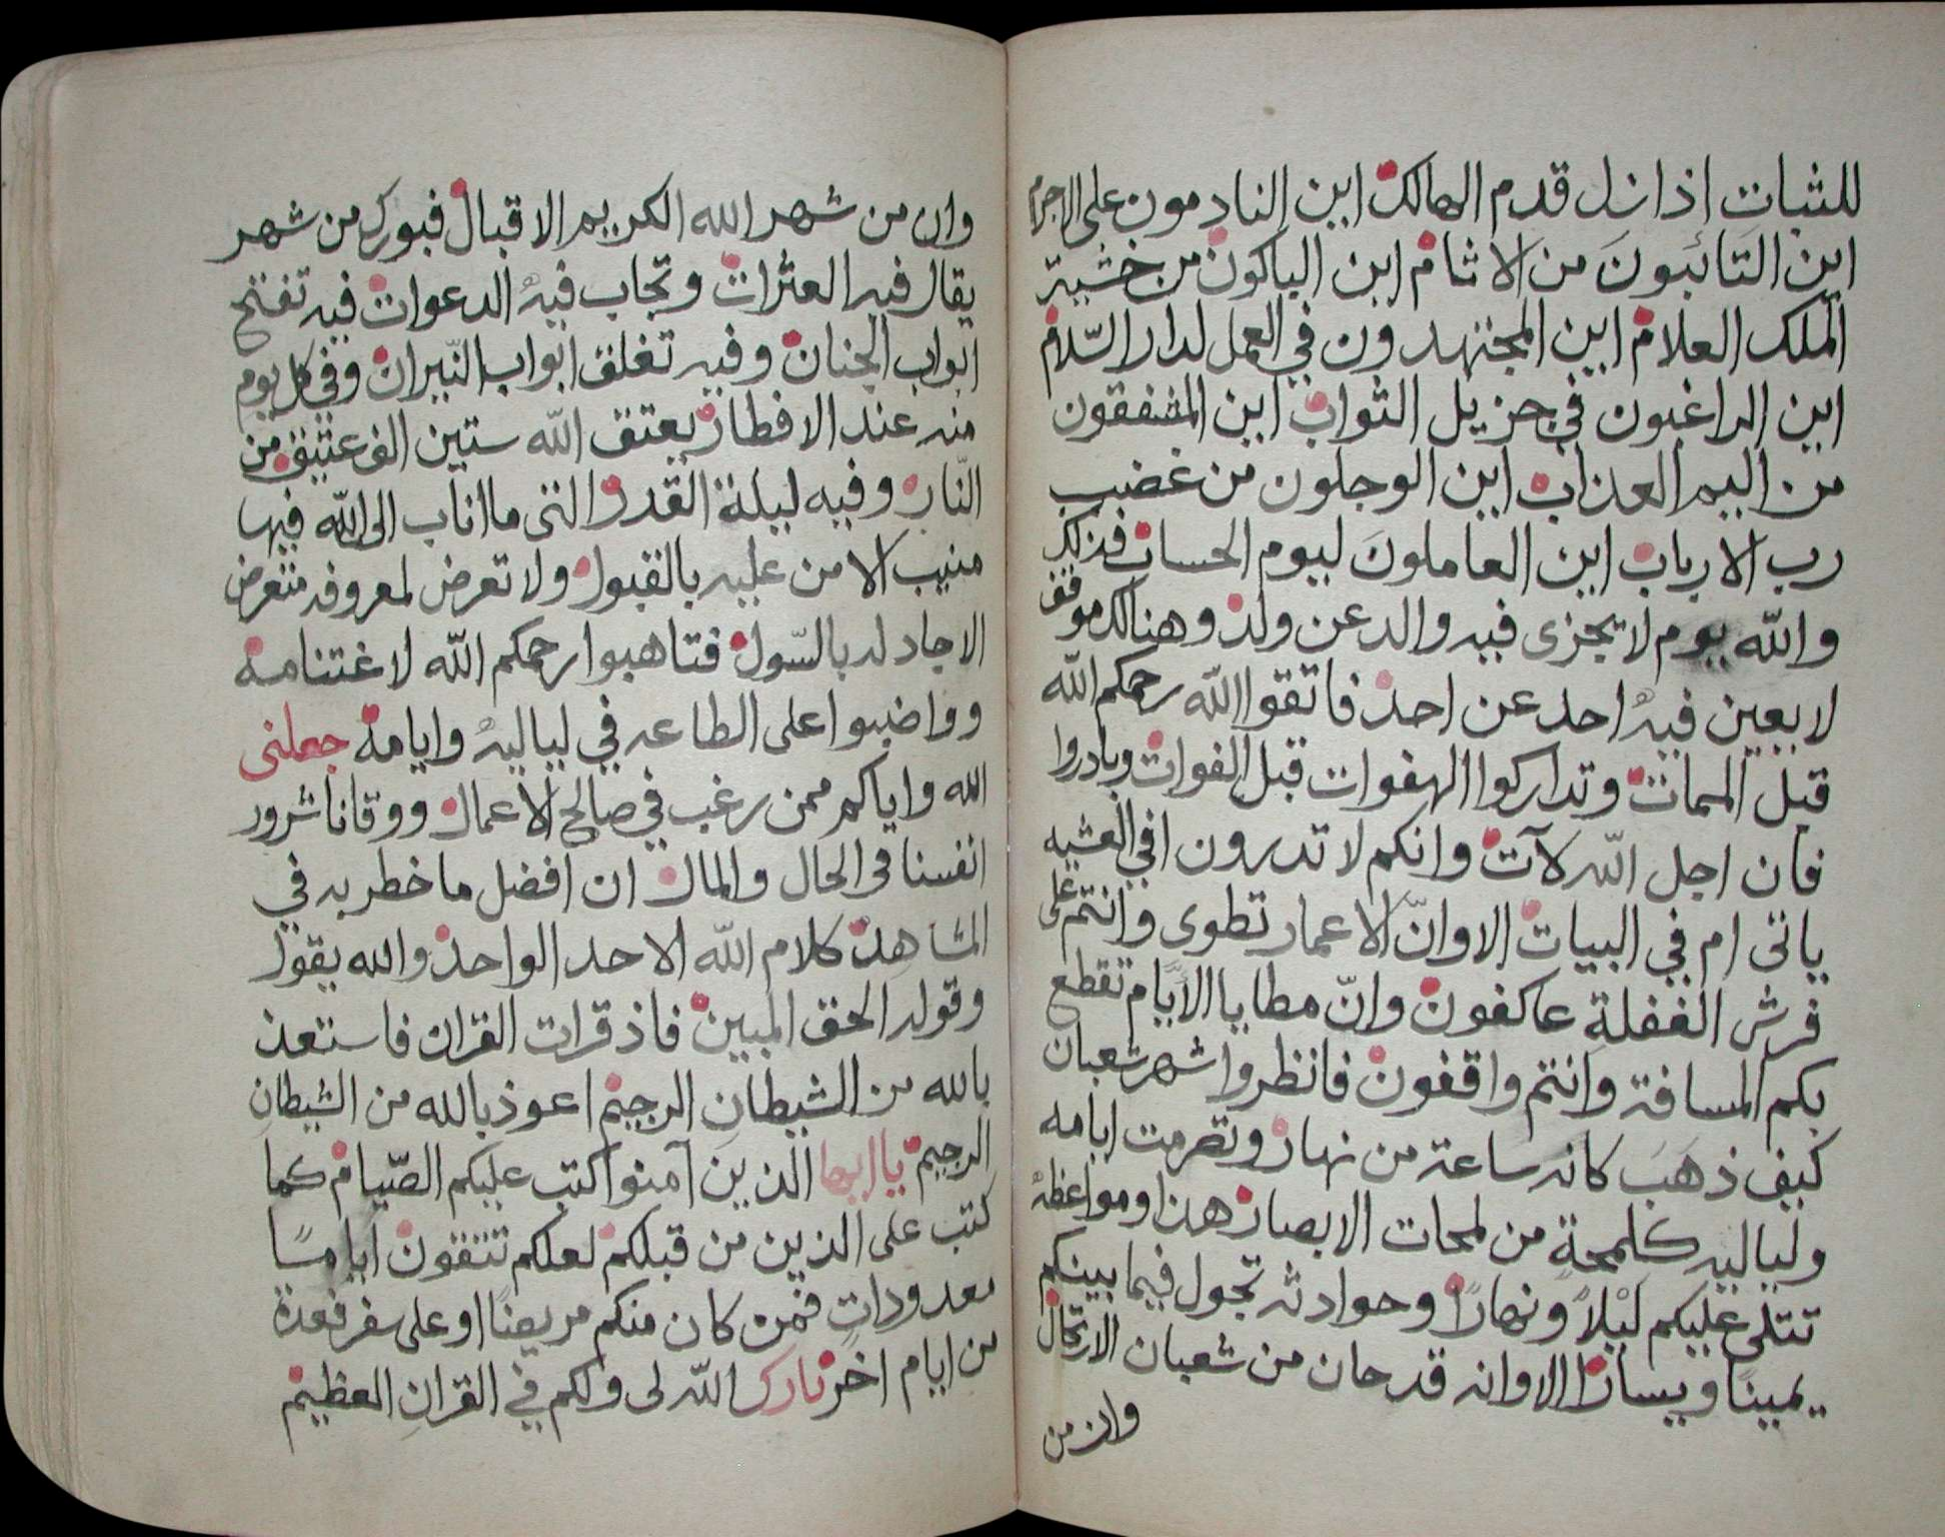 للثبات اذا زل قدم الهالك اين النادمون على الاجرام
اين التائبون من الاثام اين الباكون من خشية
الملك العلام اين المجتهدون في العمل لدار السّلام
اين الراغبون في جزيل الثواب اين المشفقون
من اليم العذاب اين الوجلون من غضب
رب الارباب اين العاملونَ ليوم الحساب فذلك
والله يوم لا يجزى فيه والد عن ولد وهنالك موقف
لا يعين فيهُ احد عن احد فاتقوا اللّه رحمكم اللّه
قبل الممات وتداركوا الهفوات قبل الفوات وبادروا
فان اجل اللّه لآت وانكم لا تدرون افي العشيه
ياتى ام في البيات الا وانّ الاعمار تطوى وانتم على
فرش الغفلةِ عاكفون وانّ مطايا الايّام تقطع
بكم المسافة وانتم واقفون فانظروا شهر شعبان
كيف ذهَبَ كانه ساعة من نهار وتصرمت ايامه
ولياليه كلمحةٍ من لمحات الابصار هذا ومواعظهُ
تتلى عليكم ليْلاً ونهارًا وحوادثه تجول فيما بينكم
يمينًا ويسارًا الا وانه قد حان من شعبان الارتحال
وان من
وان من شهر الله الكريم الاقبال فبورك من شهر
يقال فيه العثرات وتجاب فيهُ الدعوات فيه تفتح
ابواب الجنان وفيه تغلق ابواب النّيران وفي كل يوم
منه عند الافطار يعتق اللّه ستين الف عتيق من
النّار وفيه ليلة القدر التى ما اناب الى اللّه فيها
منيب الا من عليه بالقبول ولا تعرض لمعروفه متعرض
الا جاد له بالسّول فتاهبوا رحمكم اللّه لاغتنامه
وواضبوا على الطاعه في لياليهُ وايامه جعلنى
الله واياكم ممن رغب في صالح الاعمال ووقانا شرور
انفسنا فى الحال والمال ان افضل ما خطر به في
المشاهد كلام اللّه الاحد الواحد والله يقول
وقوله الحق المبين فاذ قرات القران فاستعذ
بالله من الشيطانِ الرجيم اعوذ بالله من الشيطانِ
الرجيم يا ايها الذين آمنوا كتب عليكم الصّيام كما
كتب على الذين من قبلكم لعلكم تتقون اياما
معدوداتٍ فمن كان منكم مريضًا او على سفر فعدة
من ايام اخر بارك اللّه لى ولكم في القرانِ العظيم